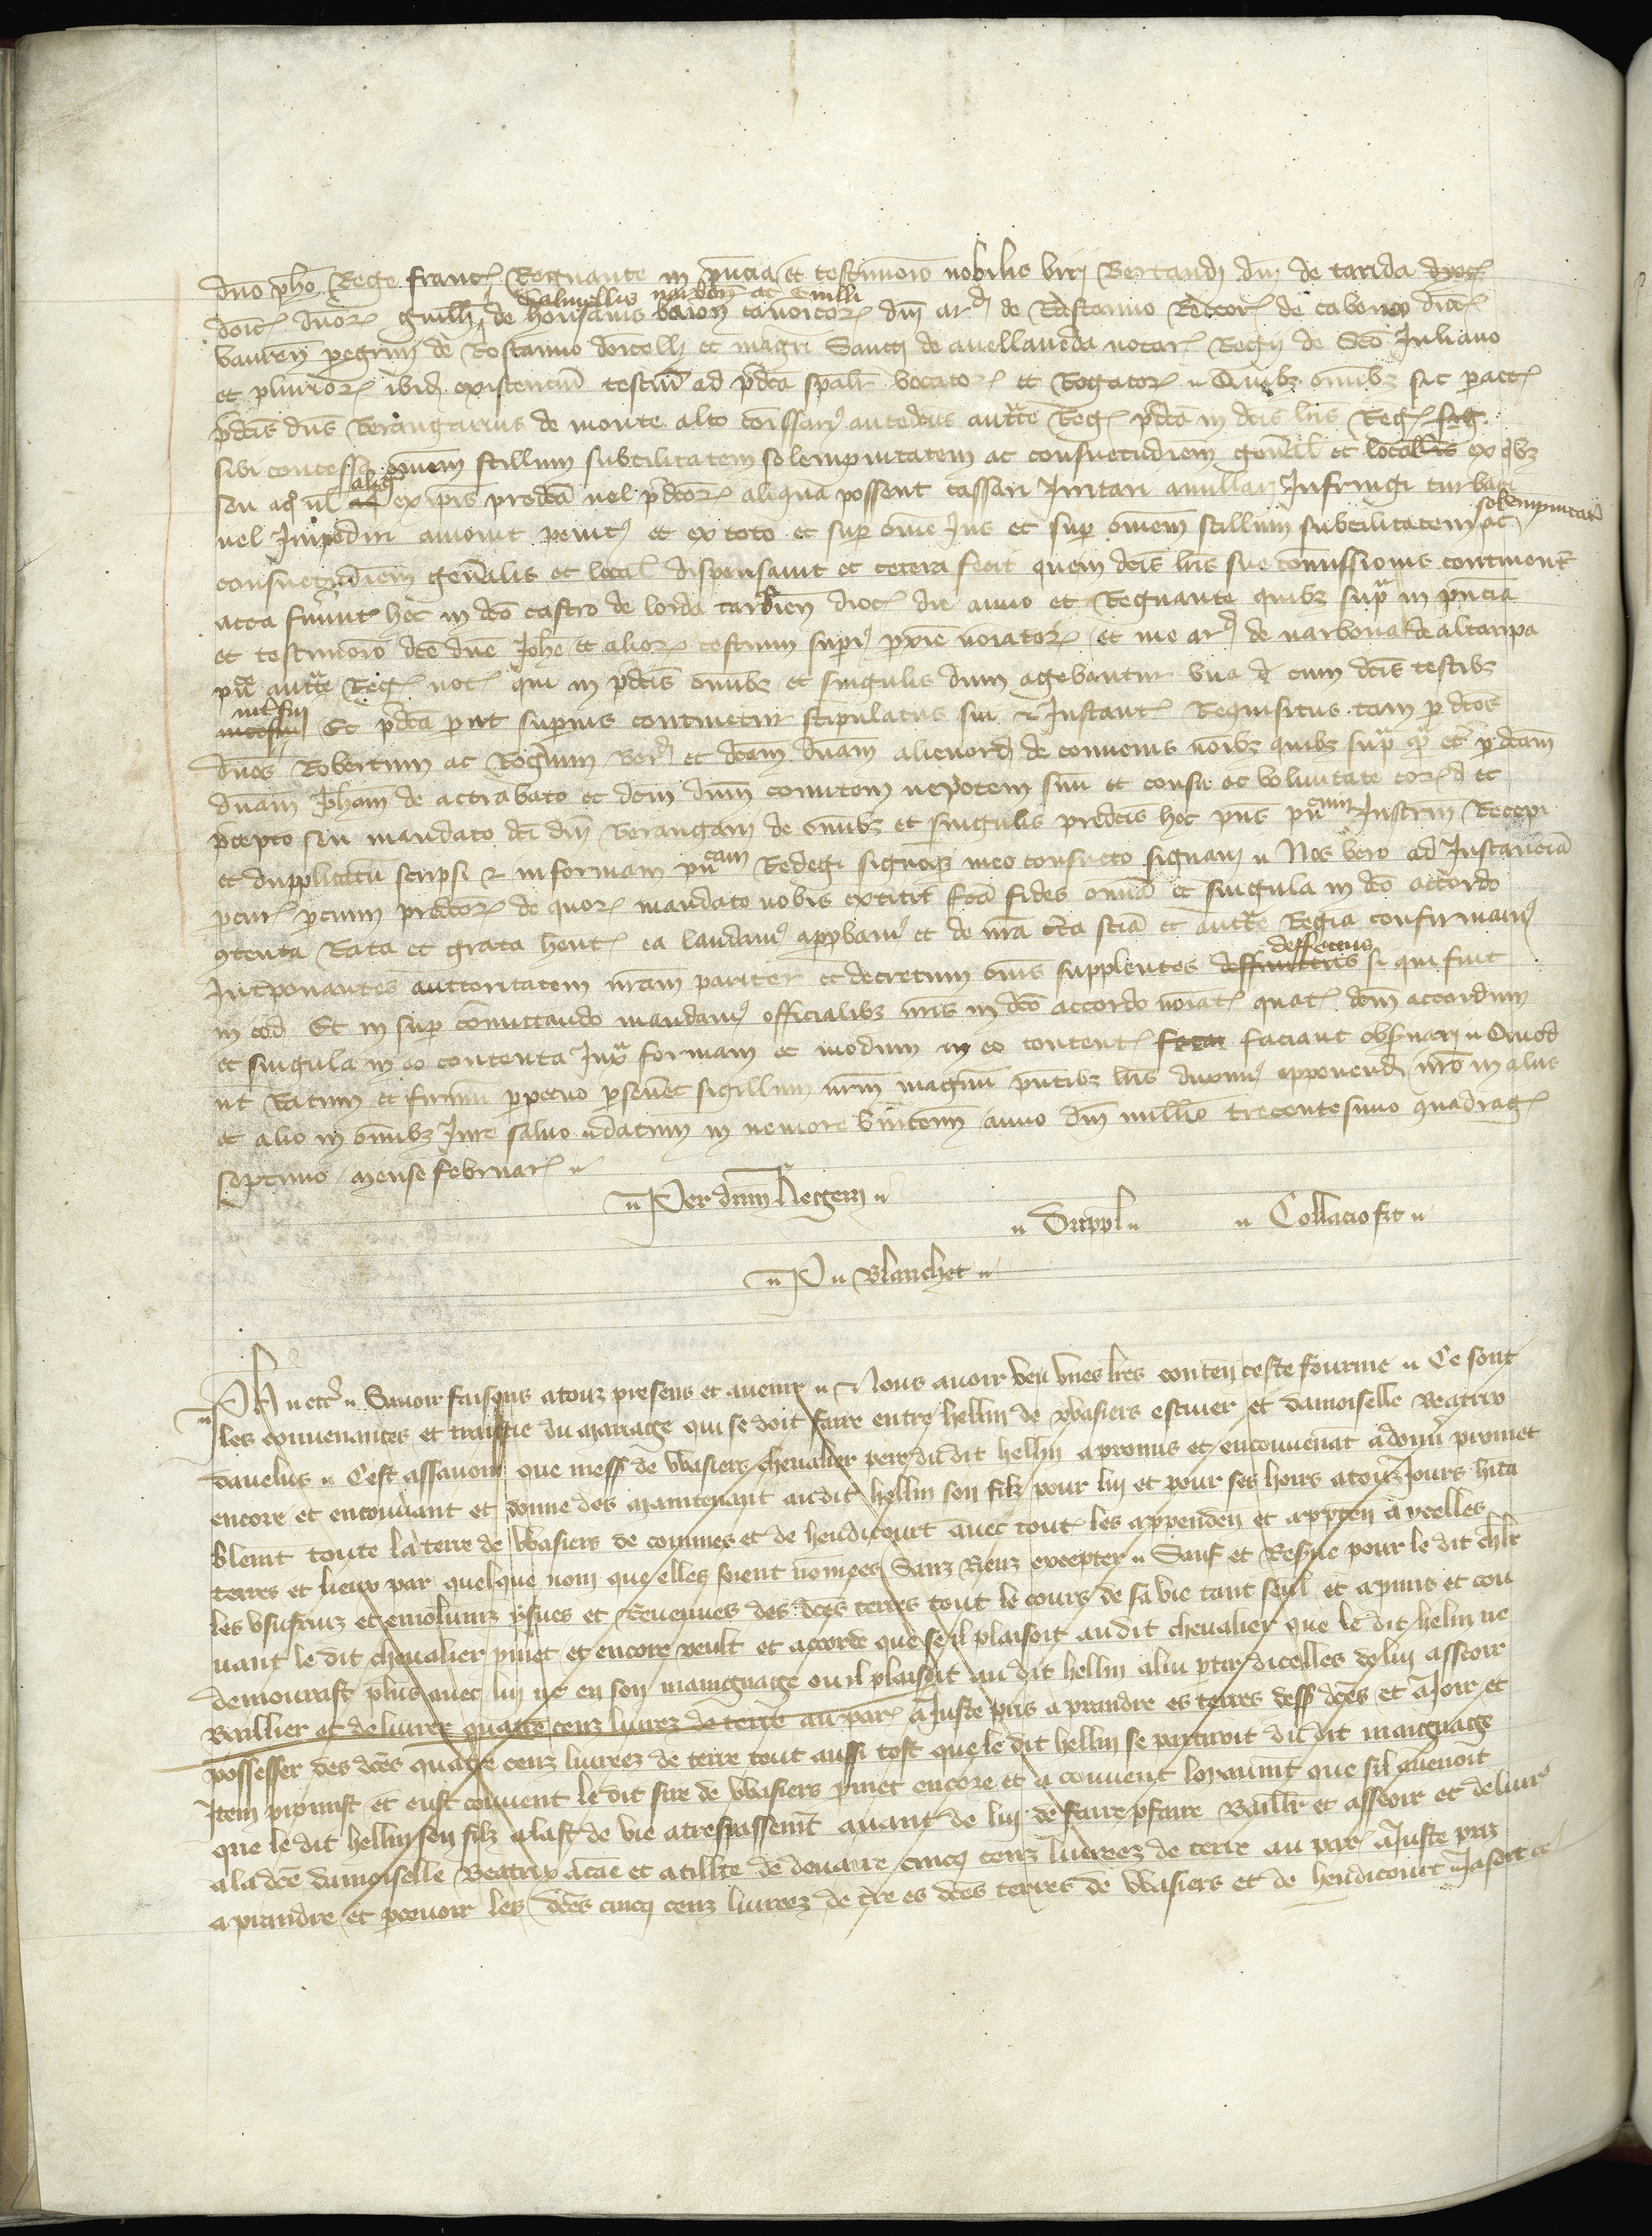 dno pho Rege franc Regnante in pncia et testimonio nobilis viri Bertrandi dni de tarida
domic dnor guill de Chalmellis narbon ac Emilli canoicor dni ard de Rostanno Rector de cabones dioc
vauren pegrini de Rostanno doicelli et magri Sancij de avellaneda notar Regij de Sco Juliano
et plurior ibid existencium testiu ad pdca spalr vocator et Rogator Quibz omibz sic pact
pdcis dns Berengarius de monte alto comissari antedcus auctte Reg pdca in dcis lris Reg
sibi concessa omem stillum subtilitatem solempnitatem ac consuetudiem genal et localis ex qbz
seu aq ul aliq ex ipis predca vel pdcor aliqua possent cassari Irritari anullari Infringi turbari
vel Impediri amovit penit et ex toto et sup ome Jus et sup omem stillum subtilitatem solempnitate ac
consuetudiem genalis et local dispensavit et cetera fecit quem dcis lris sue comissionis continent
acta fuunt hec in dco castro de lorda tarbien dioc die anno et Regnante quibz supra in pncia
et testimonio dce dne Johe et alior testium superi pxie noiator et me ard de narbona de altaripa
pu auctte Reg not qui in pdcis omibz et singulis dum agebantur una cum dcis testibz
intfui Et pdca put superius continetur stipulatus fui et Instant Requisitus tam p dcos
dnos Robertum ac Rogerium Berd et dcam dnam alienord de convenis noibz quibz supra qa etc p dcam
dnam Joham de actrabato et dcm dnm comitem nepotem suu et consu ac voluntate eord et
pcepto seu mandato dci dni Berengarij de omibz et singulis predcis hec pns pucum Instrm Recepi
et dupplicatu scripsi et in formam pucam Redegi signoqz meo consueto signavi Nos vero ad Instanciā
pcur pcium predcor de quor mandato nobis extitit fca fides omia et singula in dco accordo
contenta Rata et grata hent ea laudam approbam et de nra cta scia et auctte Regia confirmam
Intponantes auctoritatem nram pariter et decretum omis supplentes deffectus si qui sint
in eod Et in sup comittendo mandam officialibz nris in dco accordo noiat quat dcm accordum
et singula in eo contenta Juxa formam et modum in eo content faciant obsvari Quod
ut Ratum et firmu perpetuo psevet sigillum nrm magnu pntibz lris duxim apponend nro in aliis
et alio in omibz Jure salvo datum in nemore vincenn anno dni millo trecentesimo quadrag
septimo mense februar
Per dnm Regem
Duppl Collacio fit
P Blanchet
Ph etc Savoir faisons a touz presens et avenir Nous avoir veu unes lres conten ceste fourme Ce sont
les convenances et traittie du mariage qui se doit faire entre hellin de Wasiers escuier et damoiselle Beatrix
davelus Cest assavoir que mess de Wasiers chevalier pere du dit hellin a promis et en convenant a donn promet
encore et en convant et donne des maintenant au dit hellin son filz pour lui et pour ses hoirs a touz Jours hita
blemt toute la terre de Wasiers de comines et de hendicourt avec tout les appenden et apprten a ycelles
terres et lieux par quelque nom que elles soient nomees Sanz Riens excepter Sauf et Resve pour le dit chlr
les usufruiz et emolumz yssues et Revenues des dces terres tout le cours de sa vie tant seul et a pmis et con
vant le dit chevalier pmet et encore veult et acorde que se il plaisoit au dit chevalier que le dit helin ne
demourast plus avec lui ne en son mainguaige ou il plaisoit au dit hellin a lui ptir dicelles de lui asseoir
Baillier et delivrer quatre cenz livrez de terre au par a Juste pris a prandre es terres dess dces et a Joir et
possesser des dces quatre cenz livreez de terre tout aussi tost que le dit hellin se partiroit du dit mainguage
Item promist et eust convent le dit sire de Wasiers pmet encore et a convent loyaumt que sil avenoit
que le dit hellin son filz alast de vie a trespassemt avant de lui de faire pfaire Baillr et asseoir et delivr
a la dce damoiselle Beatrix a cae et a tiltre de douaire cinq cenz livreez de terre au par a Juste pris
a prandre et pcevoir les dces cinq cenz livreez de tre es dces terres de Wasiers et de hendicourt Ja soit ce